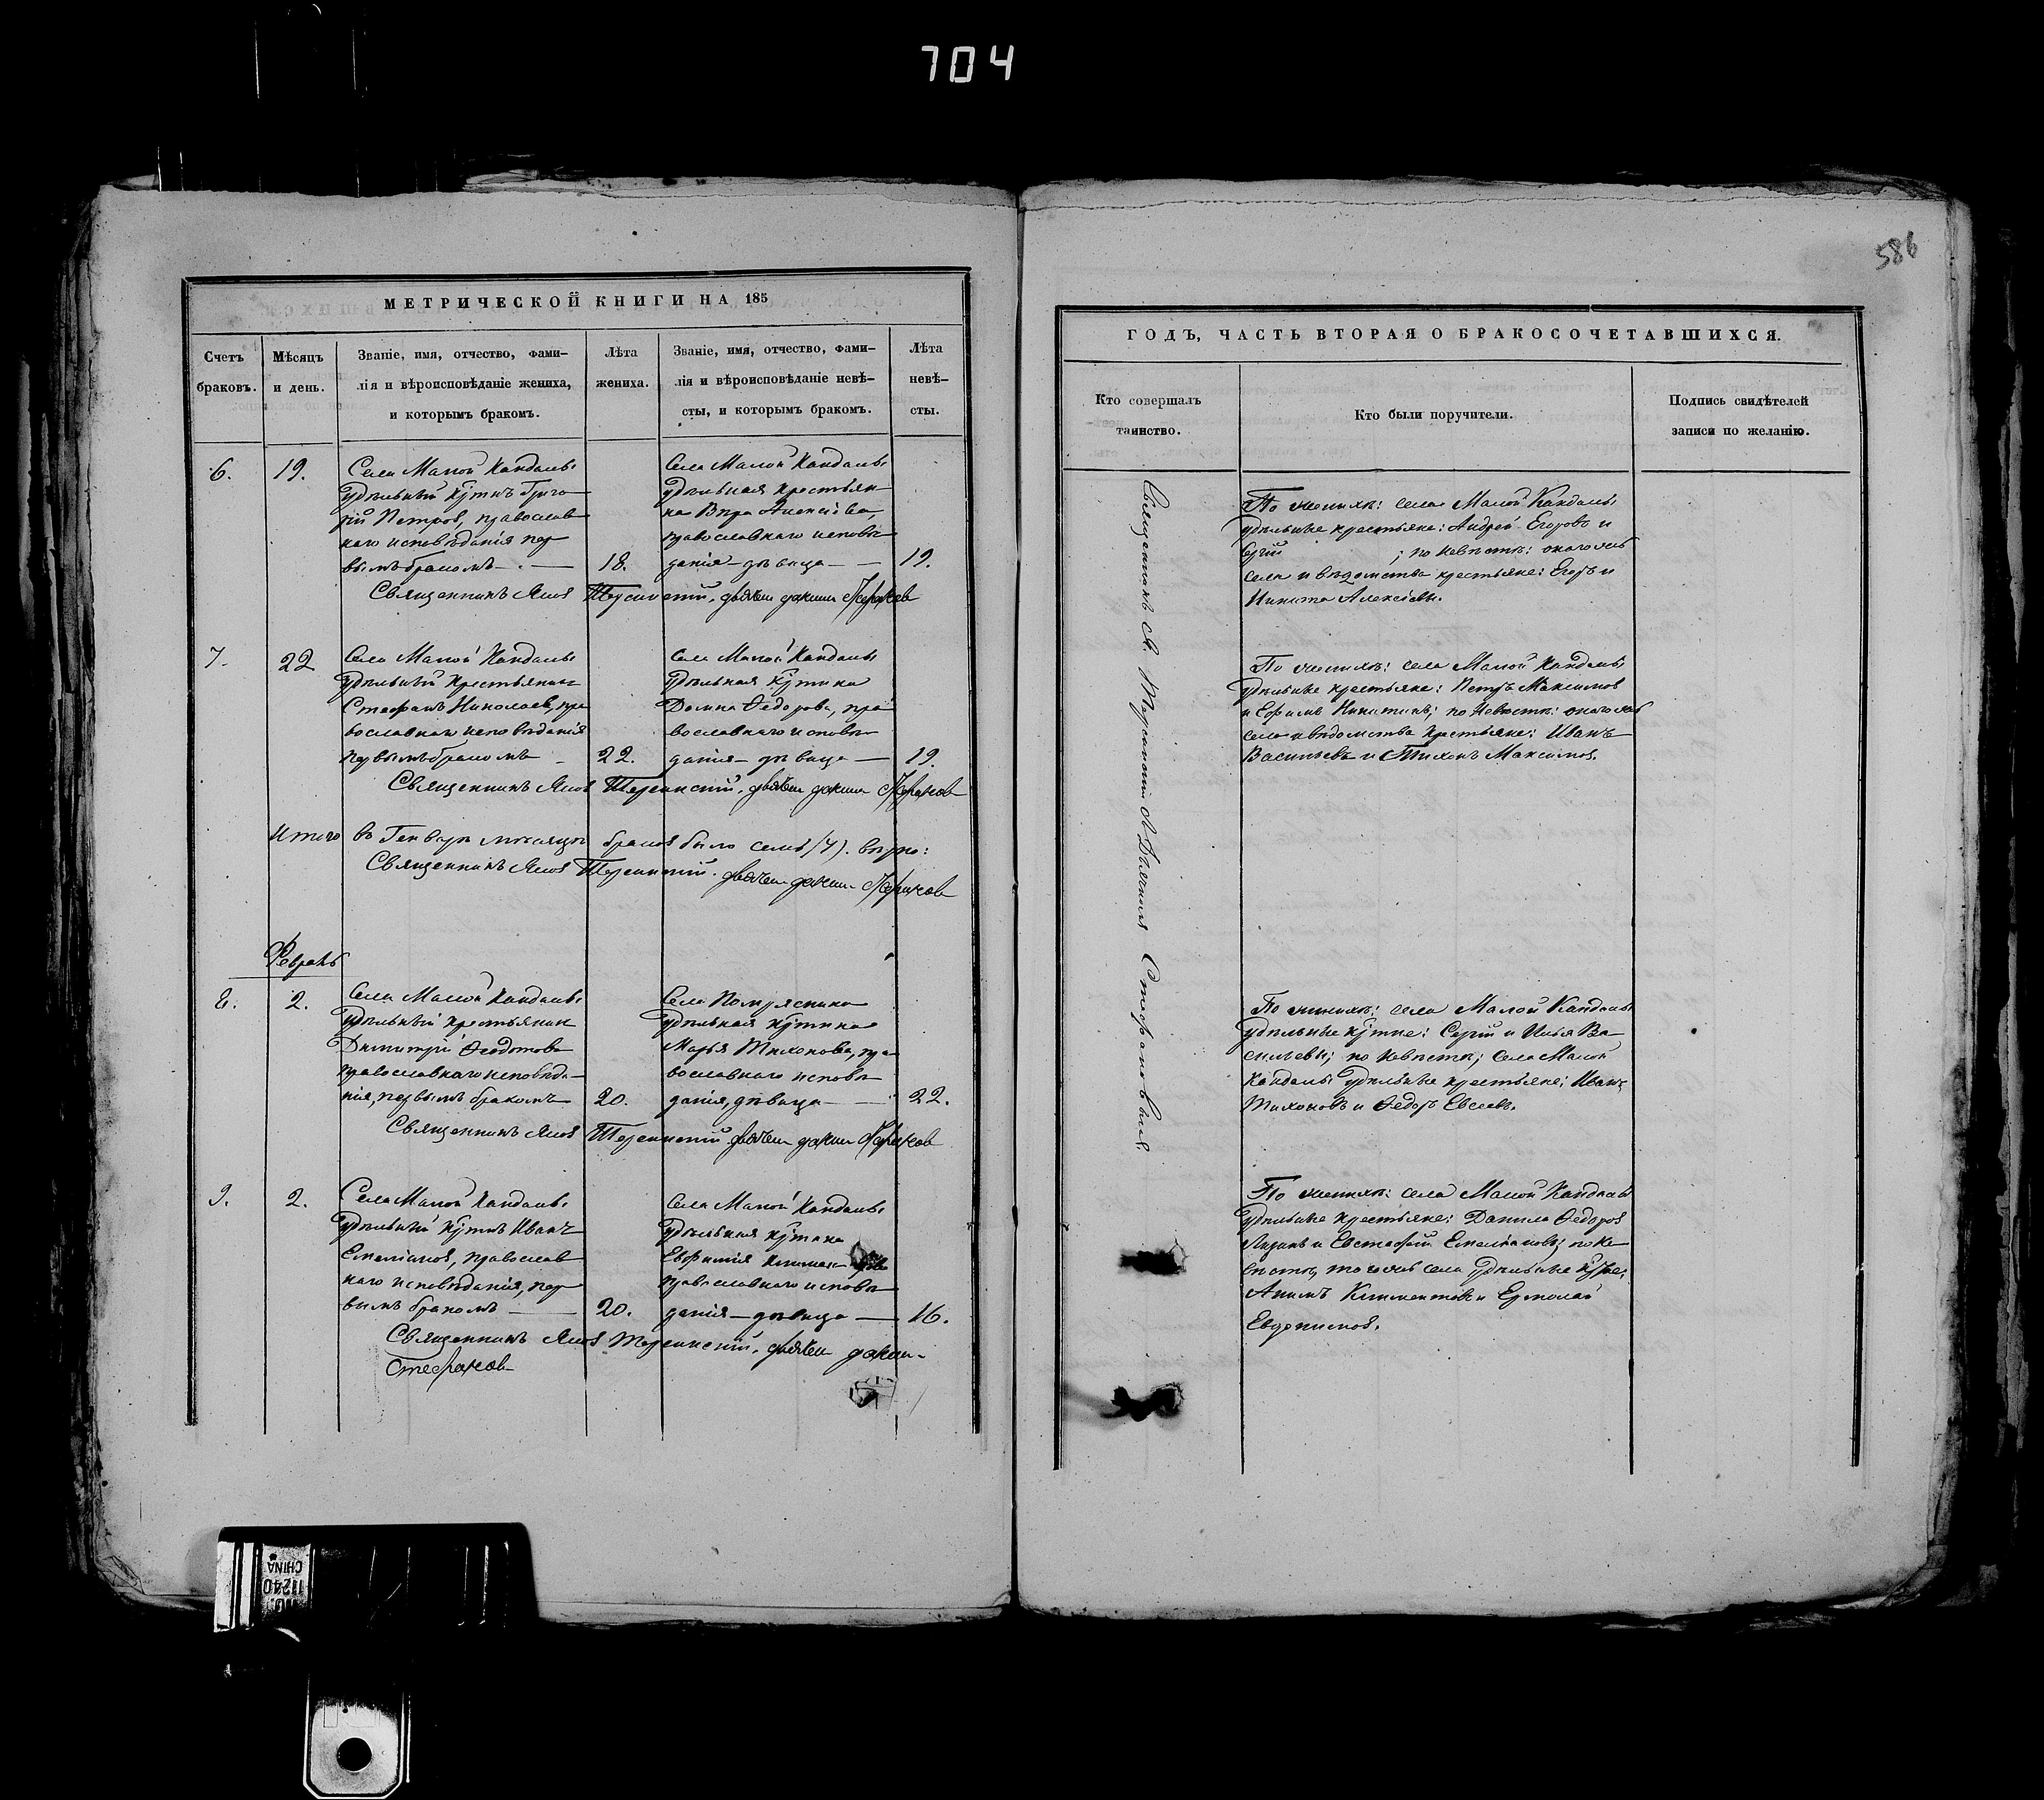 704
586
МЕТРИЧЕСКОЙ КНИГИ НА 185
Счетъ браковъ.
Мѣсяцъ и день.
Званіе, имя, отчество, фами-
лія и вѣроисповѣданіе жениха,
и которымъ бракомъ.
Лѣта
жениха.
Званіе, имя, отчество, фами-
лія и вѣроисповѣданіе невѣ-
сты, и которымъ бракомъ.
Лѣта
невѣ-
сты.
6.
19.
Села Малой Кандалы
удѣльный кр̃тнъ Григо
рій Петровъ, православ
наго исповѣданія пер
вымъ бракомъ
18.
Села Малой Кандалы
удѣльная крестьян
ка Вѣра Алексѣева,
православнаго исповѣ
данія дѣвица
19.
Священникъ
7.
22
Села Малой Кандалы
удѣльный крестьянинъ
Стефанъ Николаевъ, пра
вославнаго исповѣданія
первымъ бракомъ
22.
Села Малой Кандалы
удѣльная кр̃тнка
Домна Ѳедорова, пра
вославнаго исповѣ
данія дѣвица
19.
Священникъ
Итого въ Генварѣ мѣсяцѣ браковъ было семь (7). вѣрно:
Священникъ
Февраль
8.
2.
Села Малой Кандалы
удѣльный крестьянинъ
Димитрій Ѳеодотовъ
православнаго исповѣда
нія, первымъ бракомъ
20.
Села
удѣльная кр̃тнка
Марья Тихонова, пра
вославнаго исповѣ
данія, дѣвица
22.
Священникъ
9.
2.
Села Малой Кандалы
удѣльный кр̃тнъ Иванъ
Емеліановъ, православ
наго исповѣданія, пер
вымъ бракомъ
20.
Села Малой Кандалы
удѣльная кр̃тнка
Евфимія
православнаго исповѣ
данія дѣвица
16.
Священникъ
Стефановъ
ГОДЪ, ЧАСТЬ ВТОРАЯ О БРАКОСОЧЕТАВШИХСЯ.
Кто совершалъ
таинство.
Кто были поручители.
Подпись свидѣтелей
записи по желанію.
Священникъ
По женихѣ: села Малой Кандалы
удѣльные крестьяне: Андрей Егоровъ и
; по невѣстѣ: онагожъ
села и вѣдомства крестьяне: Егоръ и
Никита Алексѣевы.
По женихѣ: села Малой Кандалы
удѣльные крестьяне: Петръ Максимовъ
и Ефимъ Никитинъ; по невѣстѣ: онагожъ
села и вѣдомства крестьяне: Иванъ
Васильевъ и Тихонъ Максимовъ.
По женихѣ: села Малой Кандалы
удѣльные кр̃тне: Сергій и Илья Ва
сильевы; по невѣстѣ; села Малой
Кандалы удѣльные крестьяне: Иванъ
Тихоновъ и Ѳедоръ Евсеевъ.
По женихѣ: села Малой Кандалы
удѣльные крестьяне: Данила Ѳедоровъ
и Евстафій Емеліановъ; по не
вѣстѣ, тогожъ села удѣльные кр̃тне:
Акимъ Климентовъ и Ермолай
Евдокимовъ.
CHINA
11240